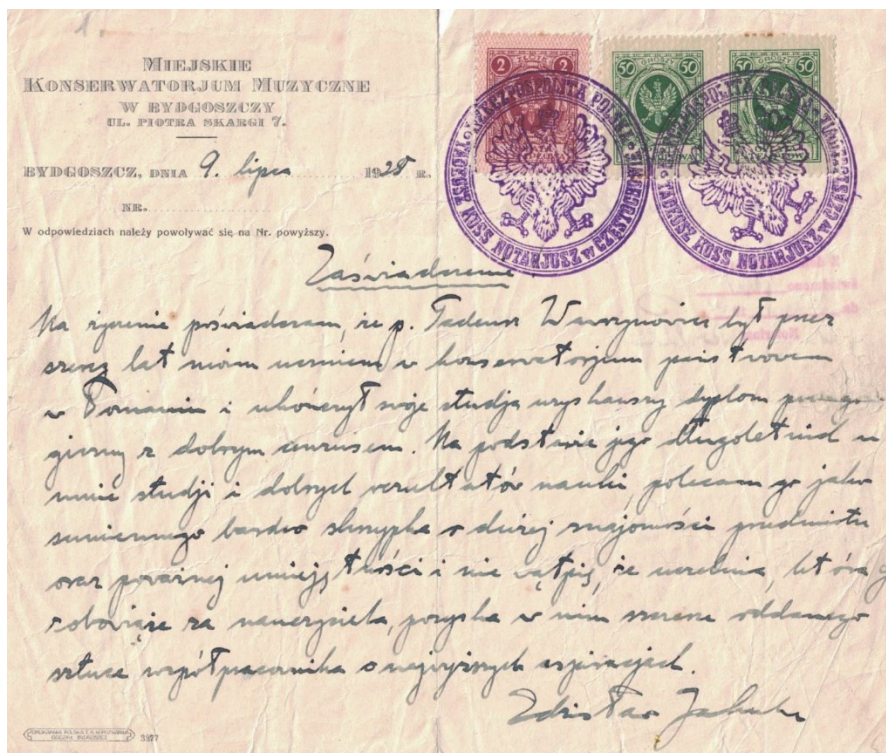 1.
MIEJSKIE
KONSERWATORJUM MUZYCZNE
W BYDGOSZCZY
UL. PIOTRA SKARGI 7.
BYDGOSZCZ, DNIA 9. lipca 1928 R.
NR.
W odpowiedziach należy powoływać się na Nr. powyższy.
2 ZŁOTE 2
50 GROSZY 50
50 GROSZY 50
RZECZPOSPOLITA POLSKA * TADEUSZ KOSS NOTARJUSZ W CZĘSTOCHOWIE
RZECZPOSPOLITA POLSKA * TADEUSZ KOSS NOTARJUSZ W CZĘSTOCHOWIE
Zaświadczenie
Na życzenie poświadczam, że p. Tadeusz Wawrzynowicz był przez
szereg lat moim uczniem w konserwatorjum państwowem
w Poznaniu i ukończył swoje studja uzyskawszy dyplom
z dobrym cenzusem. Na podstwie jego długoletnich u
mnie studji i dobrych rezultatów nauki, polecam go jako
sumiennego bardzo skrzypka o dużej znajomości przedmiotu
oraz poważnej umiejętności i nie wątpię, że uczelnia, która go
zobowiąże za nauczyciela, pozyska w nim szczerze oddanego
sztuce współpracownika o najwyższych aspiracjach.
Zdzisław Jahnke
3977